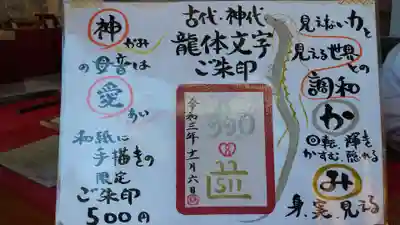 古代・神代
龍体文字
ご朱印
見えない力と
見える世界
との
調和
か
回転、輝き
かすむ、隠れる
み
身、実、見える
令和三年十一月六日
神
かみ
の母音は
愛
あい
和紙に
手描きの
限定
ご朱印
500円